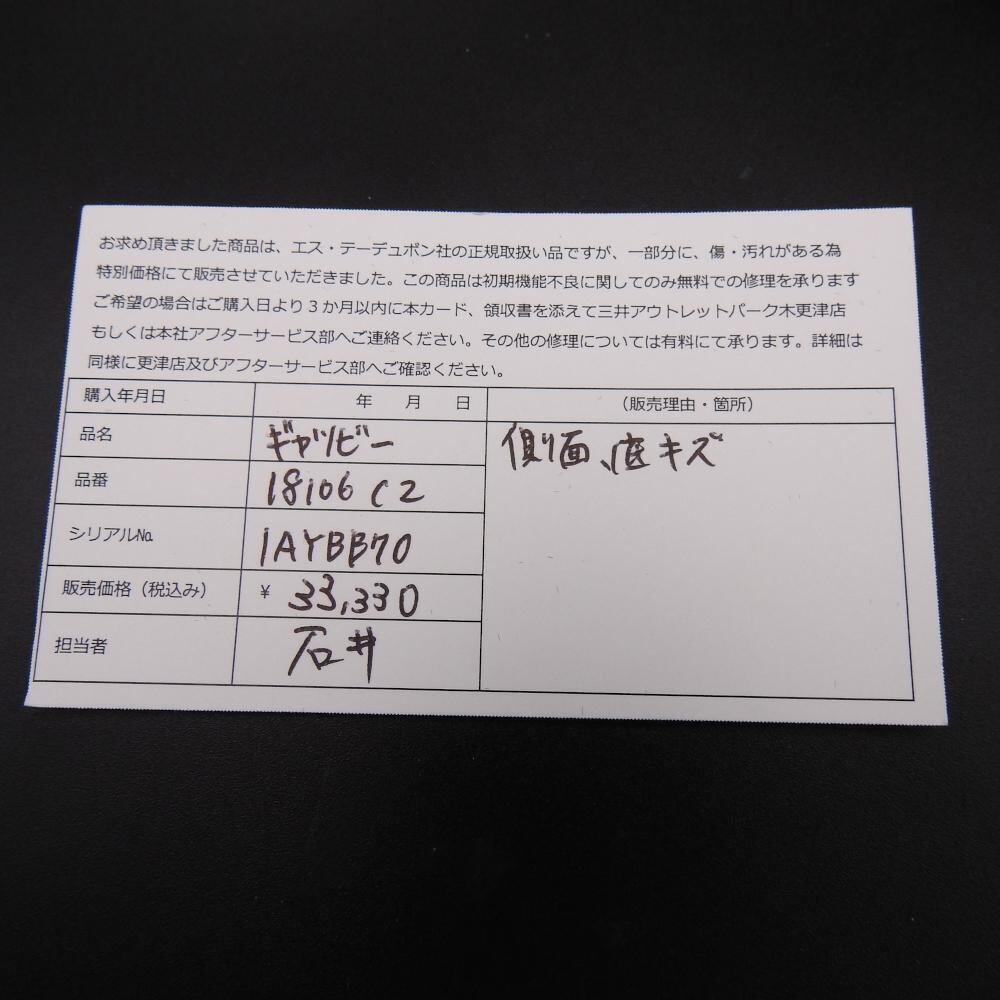 お求め頂きました商品は、エス・テーデュポン社の正規取扱い品ですが、一部分に、傷・汚れがある為
特別価格にて販売させていただきました。この商品は初期機能不良に関してのみ無料での修理を承ります
ご希望の場合はご購入日より3か月以内に本カード、領収書を添えて三井アウトレットパーク木更津店
もしくは本社アフターサービス部へご連絡ください。その他の修理については有料にて承ります。詳細は
同様に更津店及びアフターサービス部へご確認ください。
購入年月日 年 月 日 （販売理由・箇所）
品名 ギャツビー 側面、底キズ
品番 18106 C2
シリアル№ 1AYBB70
販売価格（税込み） ¥ 33,330
担当者 石井